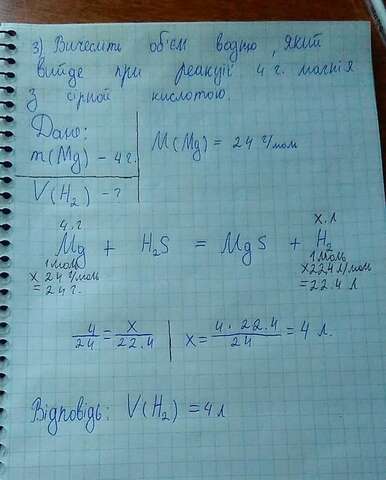 3) Вичеслити об'єм водню, який
вийде при реакції 4 г. магнія
з сірной кислотою.
Дано:
m(Mg) - 4 г.
M(Mg) = 24 г/моль
V(H₂) - ?
4. г x. л
Mg + H₂S = MgS + H₂
1 моль 1 моль
x 24 г/моль x 22.4 л/моль
= 24 г. = 22.4 л
4/24 = x/22.4 | x = 4 . 22.4/24 = 4 л.
Відповідь: V(H₂) = 4 л